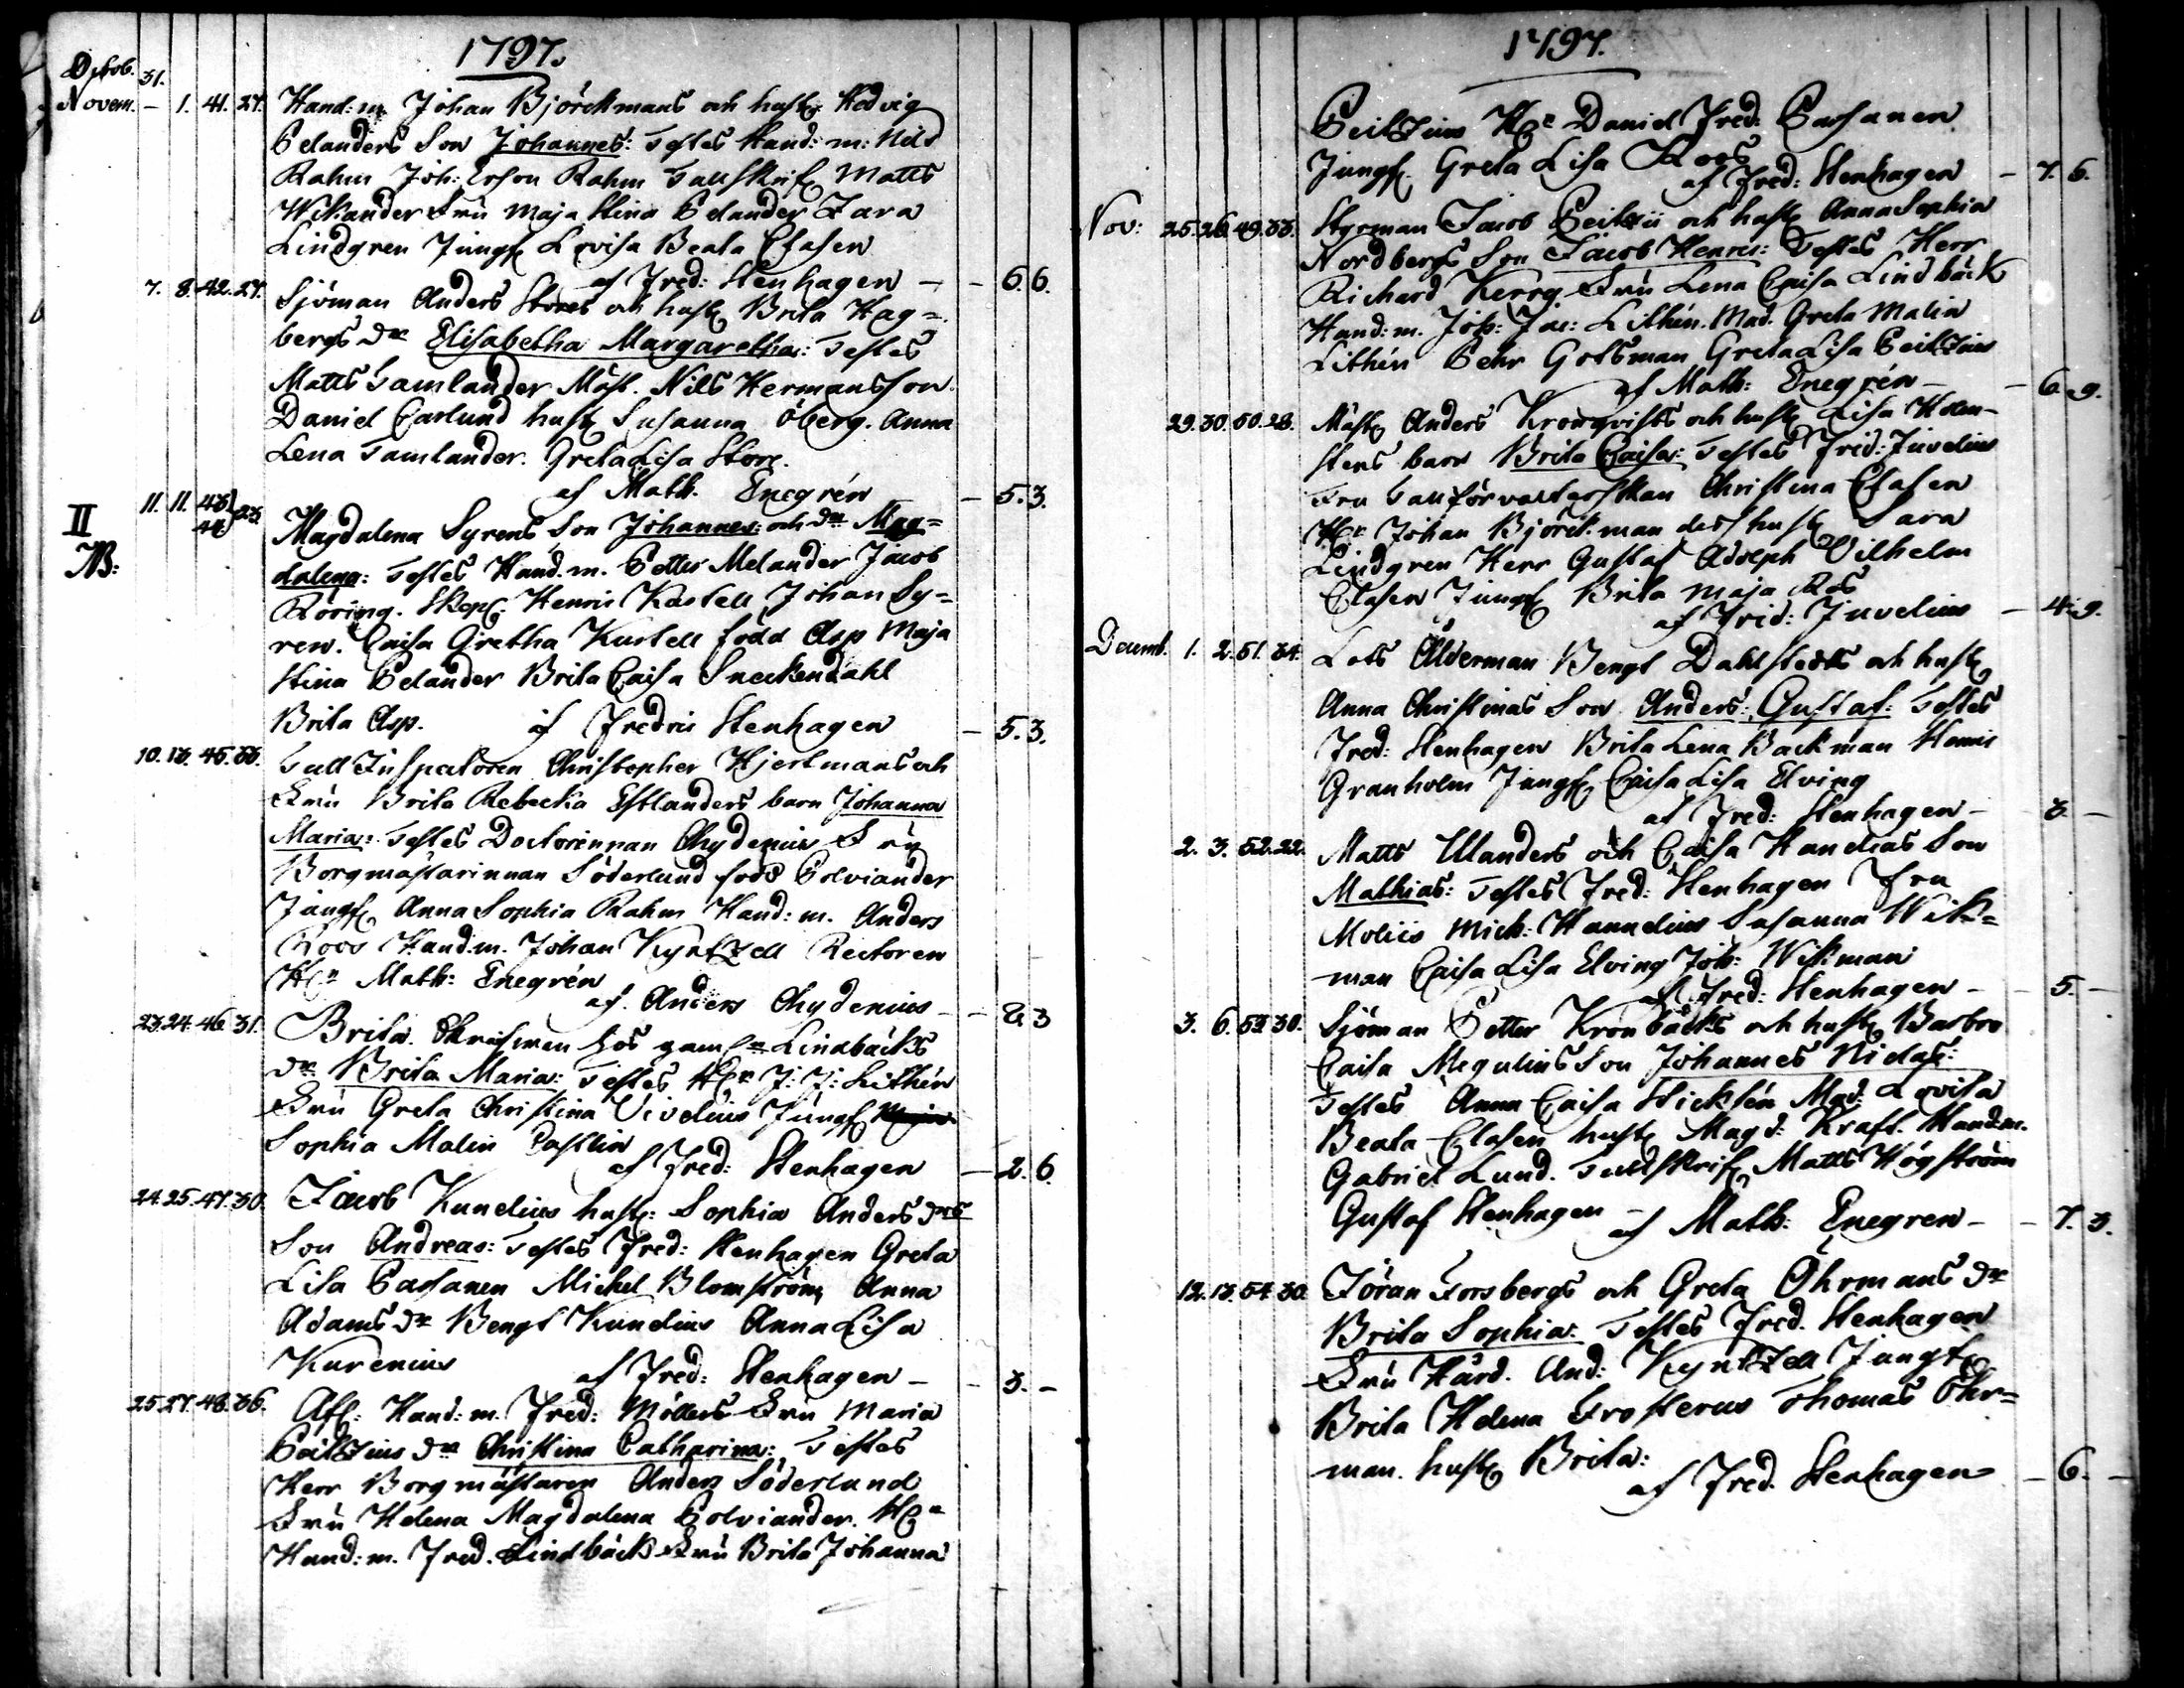 1797.
Octob. 31.
Novem. – 1. 41. 27. Hand: m. Johan Björckmans och hustr Hedvig
Pelanders Son Johannes: Testes Hand: m: Nils
Rahm Joh: Ersson Rahm Tullskrif Matts
Wikander Fru Maja Stina Pelander Zara
Lindgren Jungf Lovisa Beata Clasen
af Fred: Stenhagen – – 6. 6.
7. 8. 42. 27. Sjöman Anders Stores och hustr Brita Hag=
bergs dr Elisabetha Margaretha: Testes
Matts Tamlander Mäst. Nils Hermansson
Daniel Carlund hustr Susanna Öberg. Anna
Lena Tamlander. Greta Lisa Store.
af Math. Enegrén – 5. 3.
II 11. 11. 43. 44. 23. Magdalena Syrens Son Johannes: och dr Mag=
NB: dalena: Testes Hand. m. Petter Melander Jacob
Röring. Skep. Henric Kastell Johan Sy=
ren. Caisa Gretha Kastell född Asp Maja
Stina Pelander Brita Caisa Sneckendahl
Brita Asp. af Fredric Stenhagen – 5. 3.
10. 13. 45. 33. Tull Inspectoren Christopher Hjertmans och
Fru Brita Rebecka Estlanders barn Johanna
Maria: Testes Doctorinnan Chydenius Fru
Borgmästarinnan Söderlund född Polviander
Jungf Anna Sophia Rahm Hand: m. Anders
Roos Hand. m. Johan Kyntzell Rectoren
Hr Math: Enegrén
af. Anders Chydenius – – 8. 3
23. 24. 46. 31. Brita hos gaml Lindbäcks
dr Brita Maria: Testes Hr J: J: Lithén
Fru Greta Christina Vivelius Jungf
Sophia Malin Castlin
af Fred: Stenhagen – 2. 6.
24. 25. 47. 30. Jacob Kunelius hustr: Sophia Anders drs
Son Andreas: Testes Fred: Stenhagen Greta
Lisa Passanen Michel Blomström Anna
Adams dr Bengt Kunelius Anna Lisa
Kurenius af Fred: Stenhagen – – 3. –
25. 27. 48. 36. Afl: Hand: m. Fred: Möllers Fru Maria
Peitzius dr Christina Catharina: Testes
Herr Borgmästaren Anders Söderlund
Fru Helena Magdalena Polviander. Hr
Hand: m. Fred. Lindbäck Fru Brita Johanna
1797.
Peitzius Hr Daniel Fred: Passanen
Jungf. Greta Lisa Roos
af Fred: Stenhagen – 7. 6.
Nov: 25. 26. 49. 33. Styrman Jacob Peitzii och hustr Anna Sophia
Nordbergs Son Jacob Henric: Testes Herr
Richard Kerrg Fru Lena Caisa Lindbäck
Hand: m. Joh: Jac: Lithén. Mad. Greta Malin
Lithén Pehr Gottsman Greta Lisa Peitzius
af Math: Enegrén – – 6. 9.
29. 30. 50. 28. Mäst Anders Kronqvists och hustr Lisa Holm-
stens barn Brita Caisa: Testes Frid: Juvelius
Fru Tullförvalterskan Christina Clasen
Hr Johan Björckman dess hustr Sara
Lindgren Herr Gustaf Adolph Vilhelm
Clasen Jungf Brita Maja Ros
af Frid: Juvelius – 4. 9.
Decemb. 1. 2. 51. 34. Lots Ålderman Bengt Dahlstedts och hustr
Anna Christinas Son Anders: Gustaf: Testes
Fred: Stenhagen Brita Lena Backman Henric
Granholm Jungf Caisa Lisa Elving
af Fred: Stenhagen – 3. –
2. 3. 52. 22. Matts Ulanders och Caisa Hanelias Son
Mathias: Testes Fred: Stenhagen Fru
Moliis Mich: Hannelius Susanna Wik=
man Caisa Lisa Elving Joh: Wikman
af Fred: Stenhagen – – 5. –
3. 6. 53. 30. Sjöman Petter Kronbäcks och hustr Barbro
Caisa Megulins Son Johannes Niclas:
Testes Anna Caisa Hicklén Mad: Lovisa
Beata Clasen hustr Magd: Kraft. Hand. m.
Gabriel Lund. Tullskrif Matts Högström
Gustaf Stenhagen – af Math: Enegren – – 7. 3.
12. 13. 54. 30. Jöran Forsbergs och Greta Öhrmans dr
Brita Sophia: Testes Fred. Stenhagen
Fru Hård. And: Kyntzell Jungf
Brita Helena Frosterus Thomas Öhr=
man. hustr Brita:
af Fred. Stenhagen – 6. –